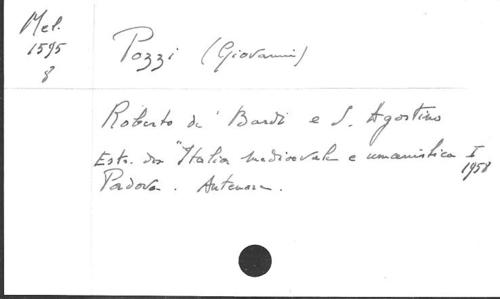 Mel.
1595
8
Pozzi (Giovanni)
Roberto de' Bardi e S. Agostino
Estr. da "Italia medioevale e umanistica I
1958
Padova. Antenore.